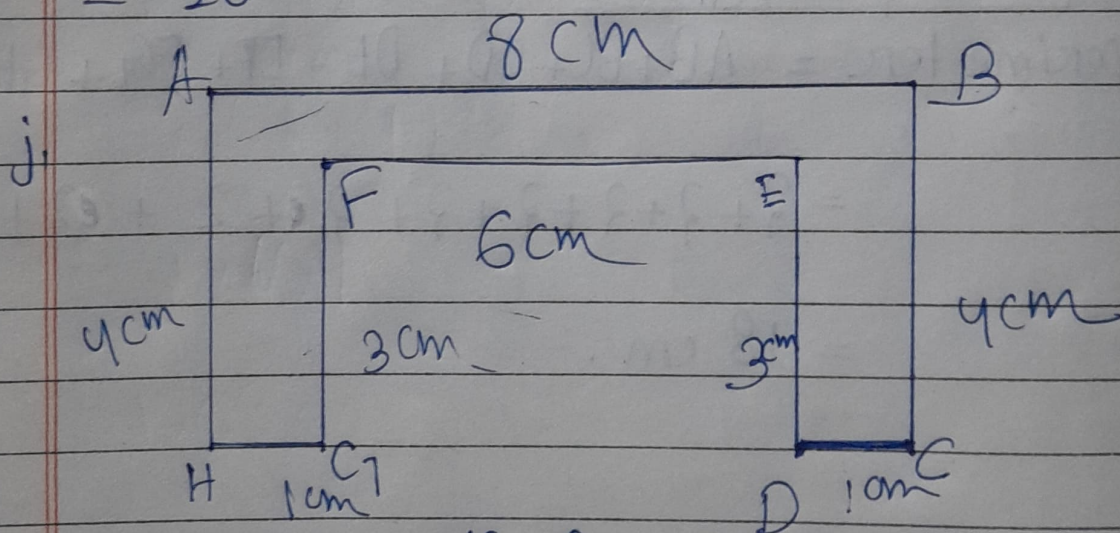 8 cm
A B
j.
F E
6 cm
4 cm 3 cm 3 cm 4 cm
H G D C
1 cm 1 cm